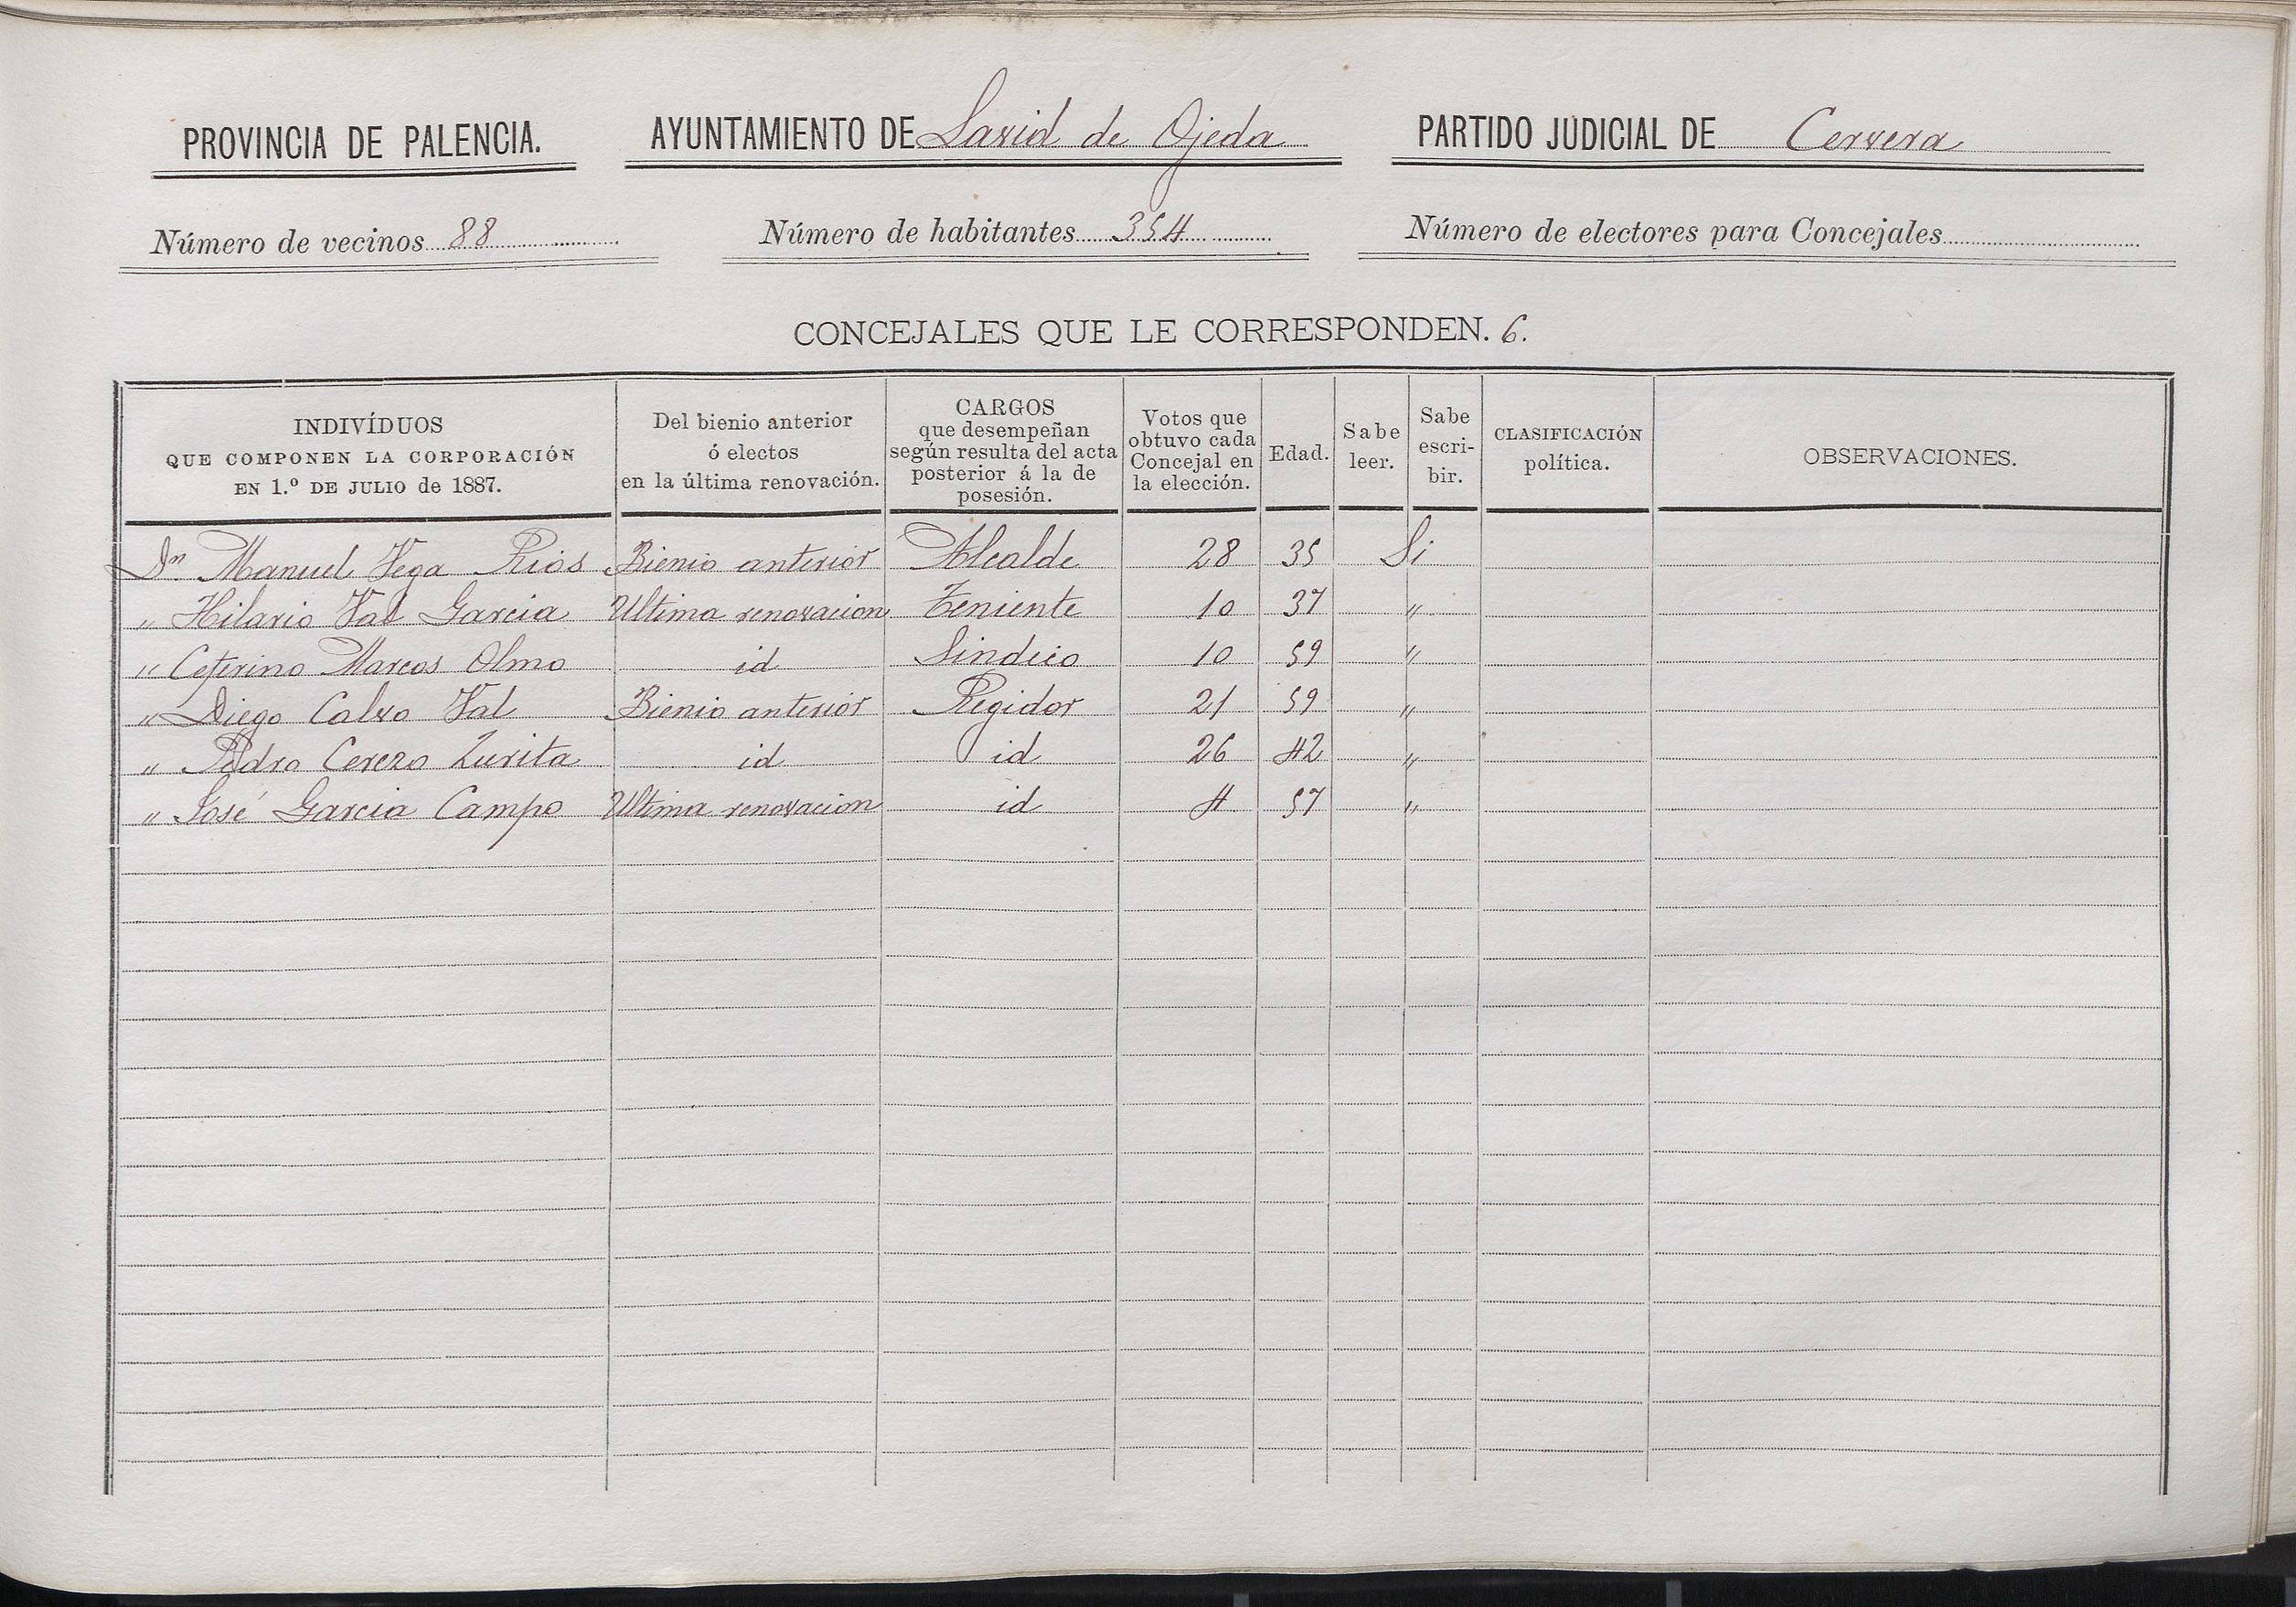 PROVINCIA DE PALENCIA. AYUNTAMIENTO DE Lavid de Ojeda PARTIDO JUDICIAL DE Cervera
Número de vecinos 88 Número de habitantes 354 Número de electores para Concejales
CONCEJALES QUE LE CORRESPONDEN. 6.
INDIVÍDUOS
QUE COMPONEN LA CORPORACIÓN
EN 1.º DE JULIO de 1887.
Del bienio anterior
ó electos
en la última renovación.
CARGOS
que desempeñan
según resulta del acta
posterior á la de
posesión.
Votos que
obtuvo cada
Concejal en
la elección.
Edad.
Sabe
leer.
Sabe
escri-
bir.
CLASIFICACIÓN
política.
OBSERVACIONES.
Dn Manuel Vega Rios Bienio anterior Alcalde 28 35 Si
" Hilario Val Garcia Ultima renovacion Teniente 10 37 "
" Ceferino Marcos Olmo id Sindico 10 59 "
" Diego Calvo Val Bienio anterior Regidor 21 59 "
" Pedro Cerezo Zurita id id 26 42 "
" José Garcia Campo Ultima renovacion id 4 57 "